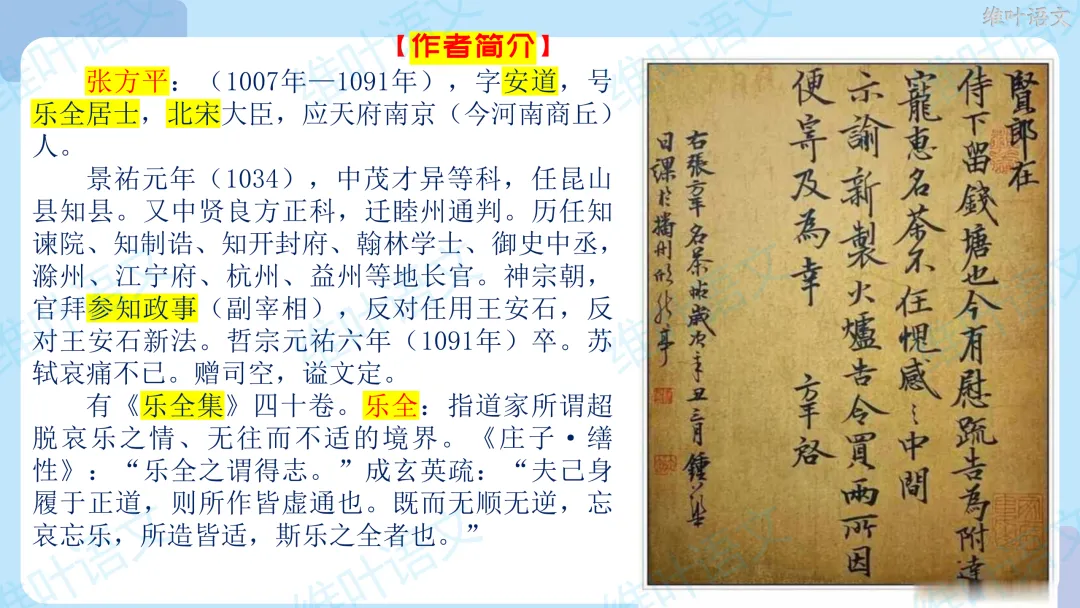 维叶语文
【作者简介】
张方平：（1007年—1091年），字安道，号
乐全居士，北宋大臣，应天府南京（今河南商丘）
人。
景祐元年（1034），中茂才异等科，任昆山
县知县。又中贤良方正科，迁睦州通判。历任知
谏院、知制诰、知开封府、翰林学士、御史中丞，
滁州、江宁府、杭州、益州等地长官。神宗朝，
官拜参知政事（副宰相），反对任用王安石，反
对王安石新法。哲宗元祐六年（1091年）卒。苏
轼哀痛不已。赠司空，谥文定。
有《乐全集》四十卷。乐全：指道家所谓超
脱哀乐之情、无往而不适的境界。《庄子·缮
性》：“乐全之谓得志。”成玄英疏：“夫己身
履于正道，则所作皆虚通也。既而无顺无逆，忘
哀忘乐，所造皆适，斯乐之全者也。”
賢郎在
侍下留錢塘也今有慰疏告為附達
寵惠名茶不任愧感〻中間
示諭新製火爐告令買兩所因
便寄及為幸 方平啓
右張方平名茶帖歲次辛丑三月
日課於播州